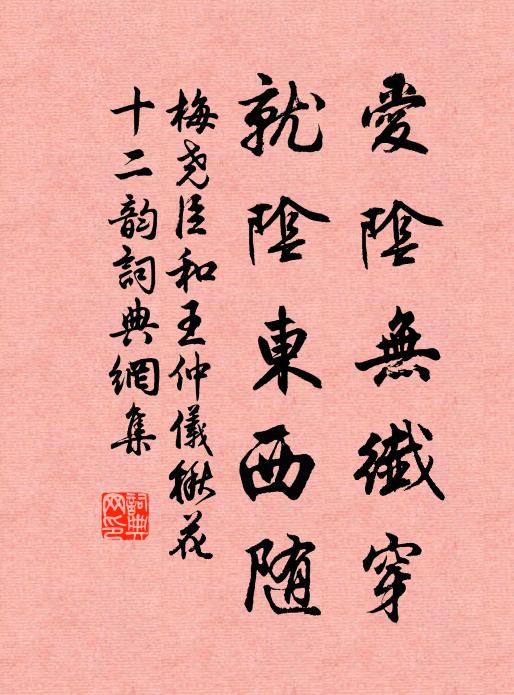 愛陰無纖穿
就陰東西随
梅尧臣和王仲儀楸花
十二韵詞典網集
詞典
网印